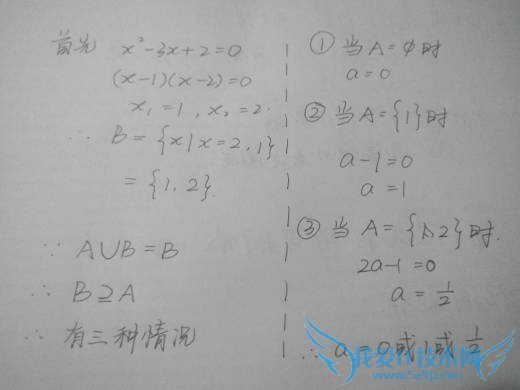 首先 x²-3x+2=0
(x-1)(x-2)=0
x₁=1, x₂=2.
∴ B={x|x=2,1}
={1,2}
∵ A∪B=B
∴ B⊇A
∴ 有三种情况
① 当A=φ时
a=0
② 当A={1}时
a-1=0
a=1
③ 当A={2}时.
2a-1=0
a=1/2
∴ a=0或1或1/2
我爱IT技术网